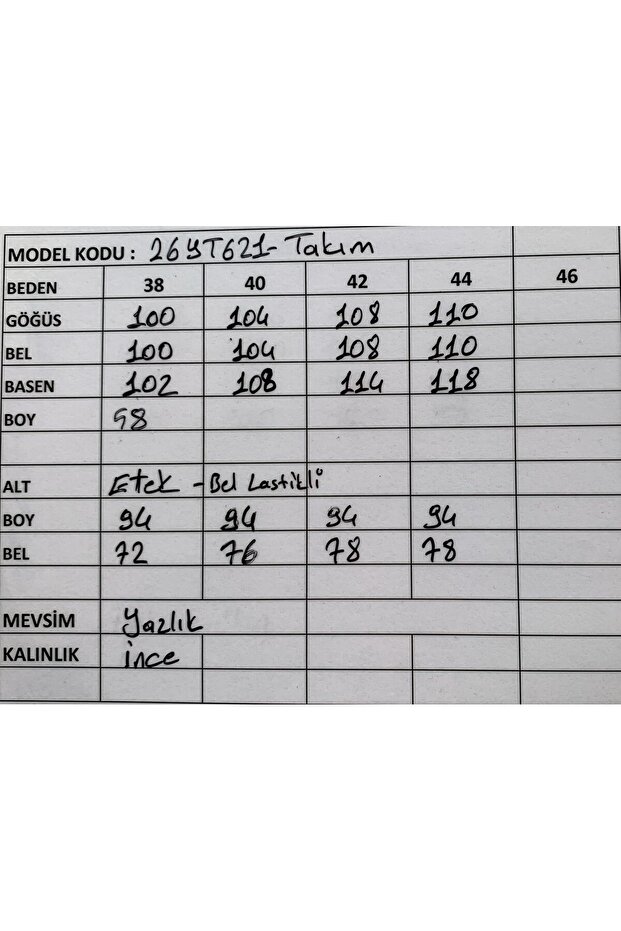 MODEL KODU : 26YT621-Takım
BEDEN 38 40 42 44 46
GÖĞÜS 100 104 108 110
BEL 100 104 108 110
BASEN 102 108 114 118
BOY 58
ALT Etek - Bel Lastikli
BOY 94 94 94 94
BEL 72 76 78 78
MEVSİM Yazlık
KALINLIK İnce